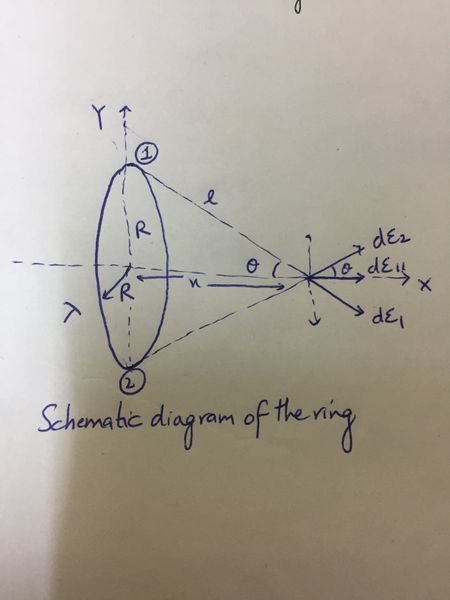 Y
1
l
R
dƐ2
θ
θ
dƐ11
R
x
X
λ
dƐ1
2
Schematic diagram of the ring